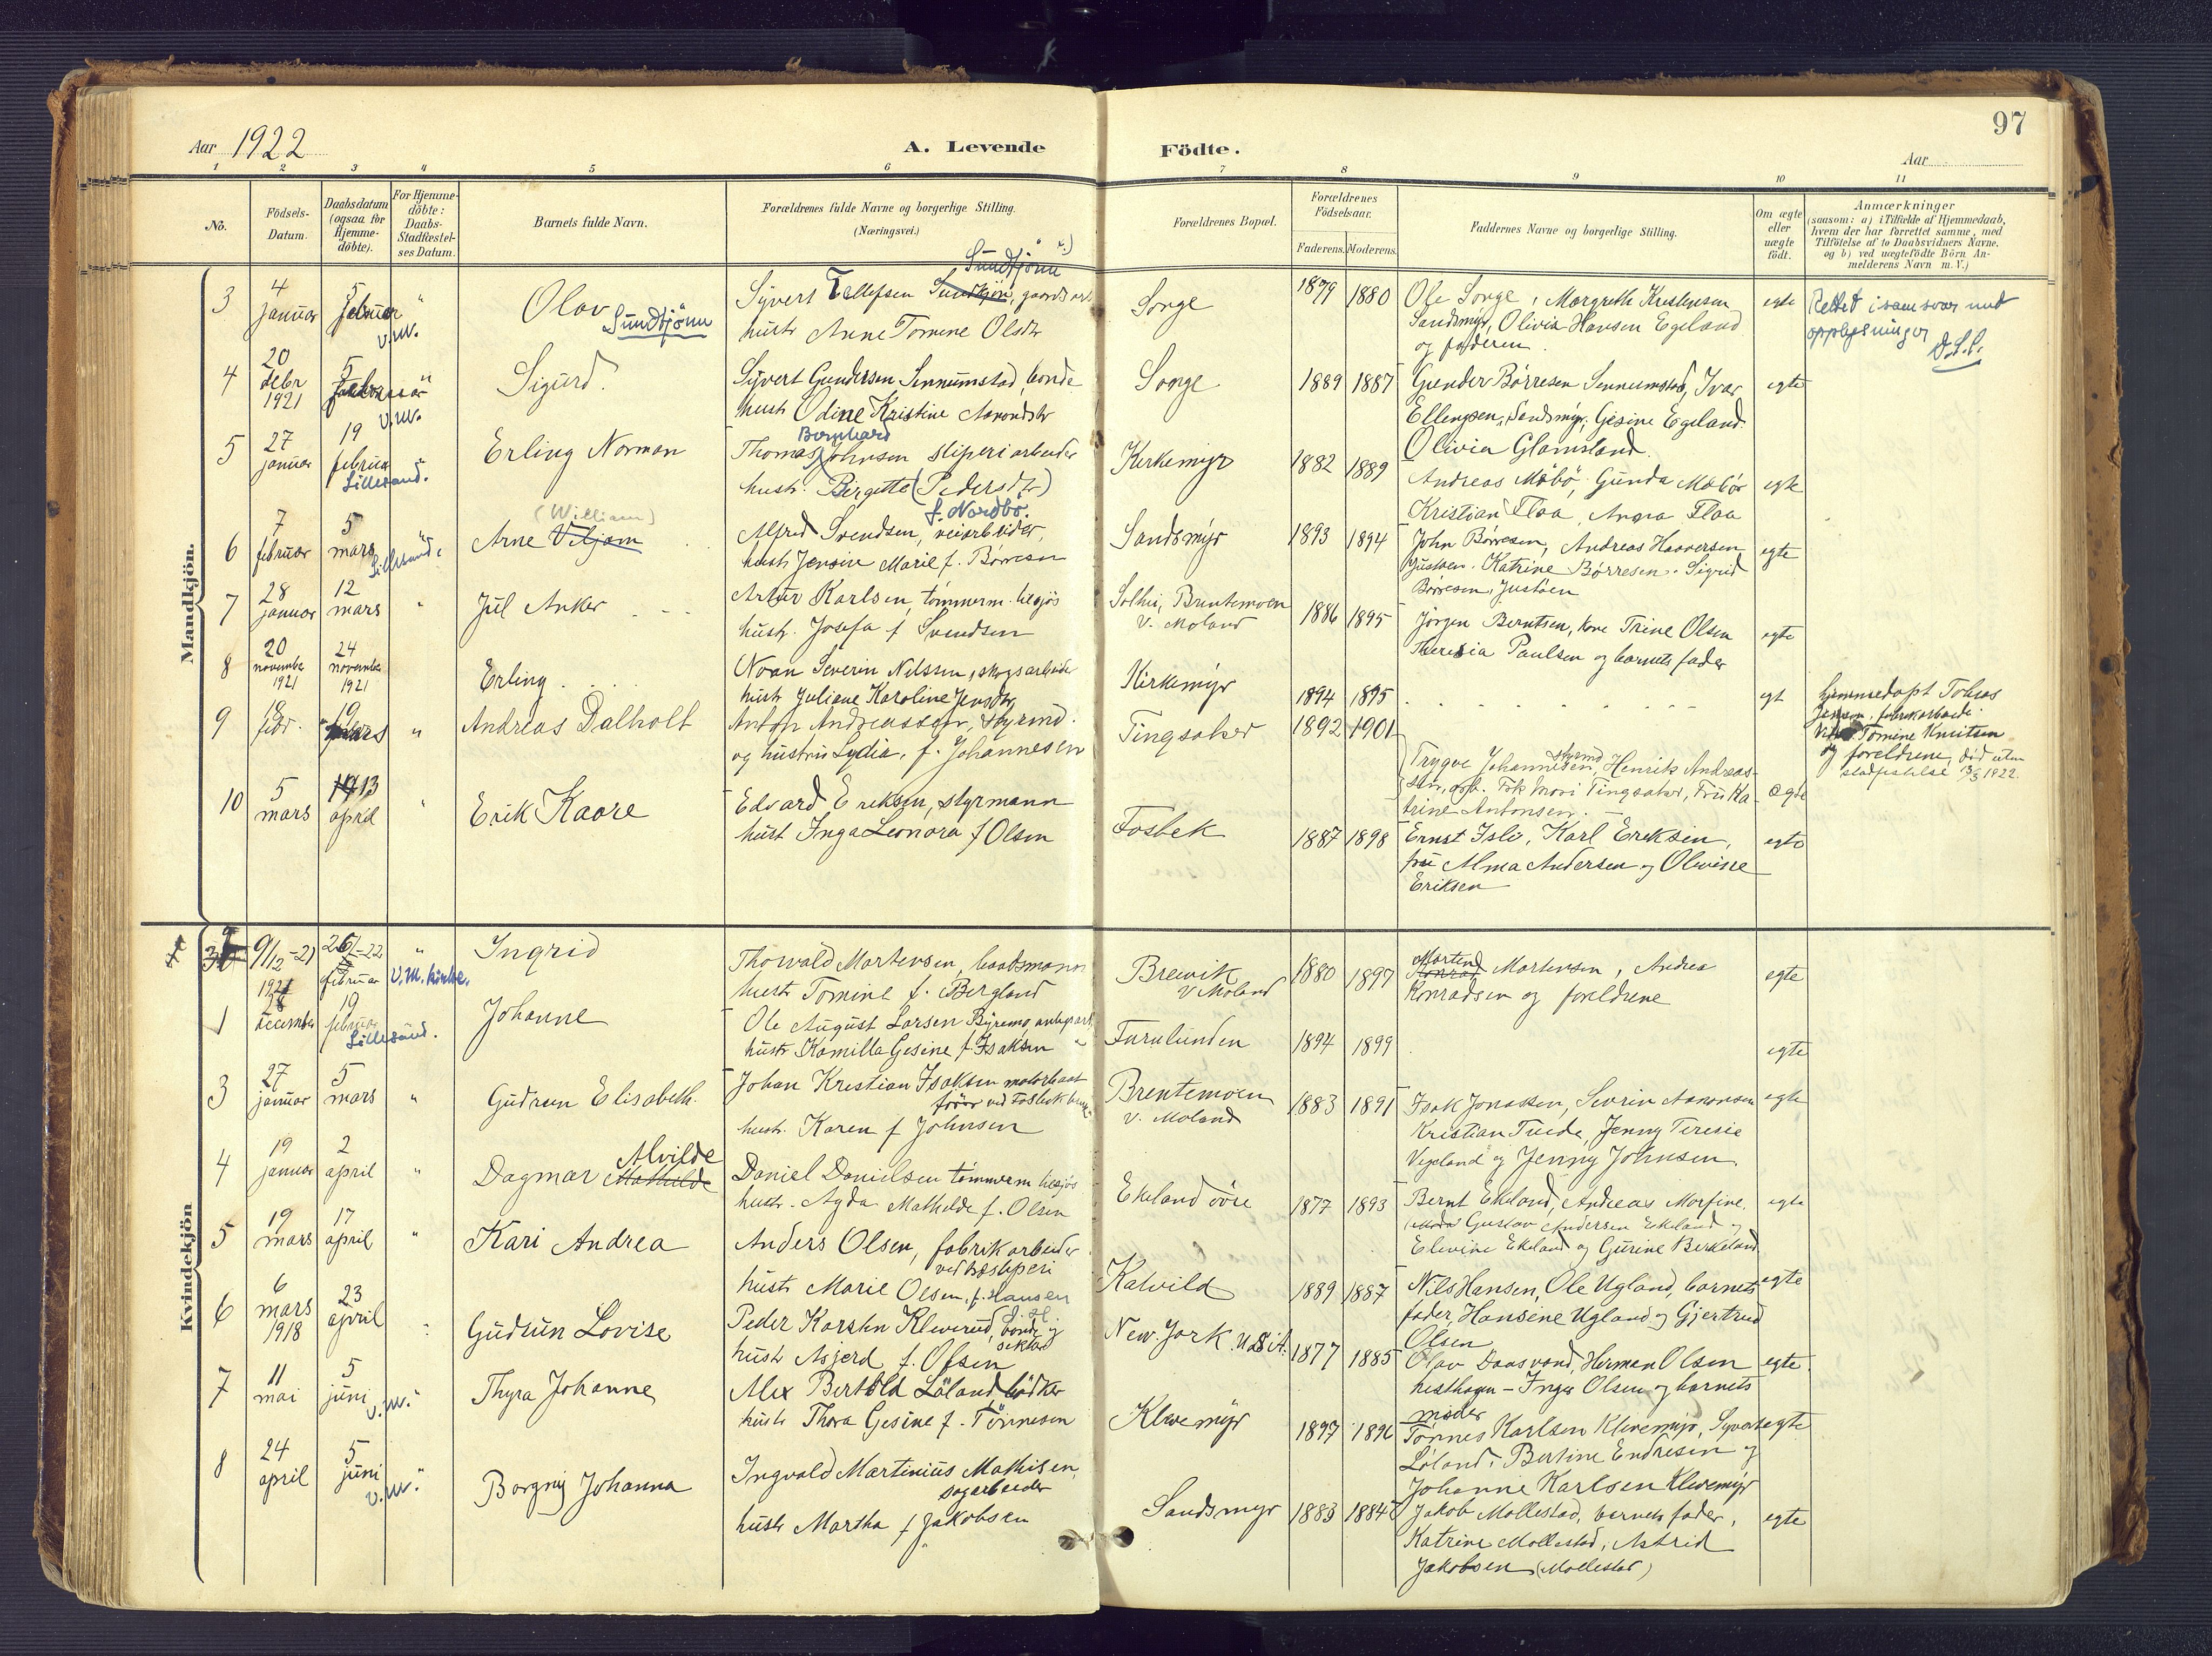 97
Aar 1922
A. Levende
Födte.
Aar
1 2 3 4 5 6 7 8 9 10 11
No.
Födsels-
Datum.
Daabsdatum
(ogsaa for
Hjemme-
döbte).
For Hjemme-
döbte:
Daabs-
Stadfæstel-
ses Datum.
Barnets fulde Navn.
Forældrenes fulde Navne og borgerlige Stilling.
(Næringsvei.)
Forældrenes Bopæl.
Forældrenes
Födselsaar.
Faderens. Moderens.
Faddernes Navne og borgerlige Stilling.
Om ægte
eller
uægte
födt.
Anmærkninger
(saasom: a) i Tilfælde af Hjemmedaab,
hvem der har forrettet samme, med
Tilföielse af to Daabsvidners Navne,
og b) ved uægtefödte Börn An-
melderens Navn m. V.)
Mandkjön.
3
4
januar
5
februar
v.m.
"
Olav
Sundtjönn
Sundtjönn
Syvert Tellefsen Sundtjön, gaards arb
hustr Anne Tomine Olsdtr
Sorge
1879 1880
Ole Sorge, Margreth Kristensen
Sandsmyr, Olivia Hansen Egeland
og faderen.
egte
Rettet i samsvar med
opplysninger
D.S.S.
4
20
debr
1921
5
februar
v.m.
"
Sigurd.
Syvert Gundersen Sennumstad, bonde
hustr Odine Kristine Aanondsdtr
Sorge
1889 1887
Gunder Børresen Sennumstad, Ivar
Ellengsen, Sandsmyr, Gesine Egeland
Olivia Glamsland.
egte
5
27
januar
19
februar
Lillesand.
"
Erling Norman
Bernhard
Thomas Johnsen sliperiarbeider
hustr. Birgitte (Pedersdtr)
f. Nordbö.
Kirkemyr
1882 1889
Andreas Møbö, Gunda Møbö
Kristian Flaa, Anna Flaa
egte
6
7
februar
5
mars
Lillesand.
"
(William)
Arne Viljam
Alfred Svendsen, veiarbeider,
hustr Jensine Marie f. Børresen
Sandsmyr
1893 1894
John Børresen, Andreas Haaversen
Justøen. Katrine Børresen. Sigrid
Børresen, Justøen
egte
7
28
januar
12
mars
"
Jul Anker
Artur Karlsen, tömmerm. tilsjös
hustr. Josefa f Svendsen
Solhei, Brentemoen
V. Moland
1886 1895
Jörgen Berntsen, kone Trine Olsen
Theresia Paulsen og barnets fader
egte
8
20
november
1921
24
november
1921
Erling
Noan Severin Nilssen, skogsarbeider
hustr Juliane Karoline Jensdtr
Kirkemyr
1894 1895
egt
hjemmedøpt Tobias
Jensen, fabrikarbeider.
Tomine Knutsen
og foreldrene, død uten
stadfestelse 13/3 1922.
9
18
febr.
19
mars
"
Andreas Dalholt
Anton Andreassen, styrmd.
og hustru Lydia, f. Johannesen
Tingsaker
1892 1901
styrmd
Trygve Johannesen, Henrik Andreas-
sen, arb. Frk Marie Tingsaker, Fru Ka-
trine Antonsen.
egte
10
5
mars
13
april
"
Erik Kaare
Edvard Eriksen, styrmann
hustr Inga Leonora f Olsen
Fosbek
1887 1898
Ernst Islo, Karl Eriksen,
fru Alma Andersen og Olevine
Eriksen
egte
Kvindekjön
9/12-21
26/-22
februar
"
V.M. kirke.
Ingrid
Thorvald Mortensen, baadsmann
hustr Tomine f. Bergland
Brewik
V Moland
1880 1897
Morten
Konrad Mortensen, Andrea
Konradsen og foreldrene
egte
1
1921
28
december
19
februar
Lillesand.
Johanne
Ole August Larsen Byremo, anlegsarb.
hustr Kamilla Gesine f. Isaksen
Furulunden
1894 1899
egte
3
27
januar
5
mars
"
Gudrun Elisabeth.
Johan Kristian Isaksen motorbaat
förer ved Fosbek bruk
hustr. Karen f Johnsen
Brentemoen
V. Moland
1883 1891
Isak Jonassen, Severin Aanonsen
Kristian Tveide, Jenny Teresie
Vegeland og Jenny Johnsen
egte
4
19
januar
2
april
"
Alvilde
Dagmar Mathilde
Daniel Danielsen tömmerm tilsjös
hustr. Agda Mathilde f. Olsen
Ekeland övre
1877 1893
Bernt Ekeland, Andreas Morfine,
Gustav Andersen Ekeland og
Elevine Ekeland og Gurine Birkeland
egte
5
19
mars
17
april
"
Kari Andrea
Anders Olsen, fabrikarbeider
ved træsliperi
hustr Marie Olsen, f. Hansen
Kalvild
1889 1887
Nils Hansen, Ole Ugland, barnets
fader, Hansine Ugland og Gjertrud
Olsen
egte
6
6
mars
1918
23
april
Gudrun Lovise
Peder Karsten Kleverud, bonde og
hustr Asjerd f. Olsen
New. York. U.S.A.
1877 1885
Olav Daasvand, Herman Olsen
hesthagen - Inger Olsen og barnets
moder
egte.
7
11
mai
5
juni
v.m.
"
Thyra Johanne
Alex Bertold Löland, bödker
hustr Thora Gesine f. Tönnesen
Klevemyr
1897 1896
Tönnes Karlsen Klevemyr, Syvert
Löland. Bertine Endresen og
Johanne Karlsen Klevemyr
egte
8
24
april
5
juni
v.m.
"
Borgny Johanna
Ingvald Martinius Mathisen,
sagarbeider
hustr Martha f Jakobsen
Sandsmyr
1883 1884
Jakob Mollestad, barnets fader,
Katrine Mollestad, Astrid
Jakobsen (Mollestad)
egte